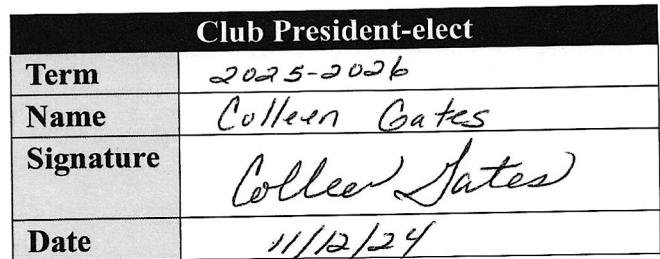 Club President-elect
Term 2025-2026
Name Colleen Gates
Signature Colleen Gates
Date 11/12/24